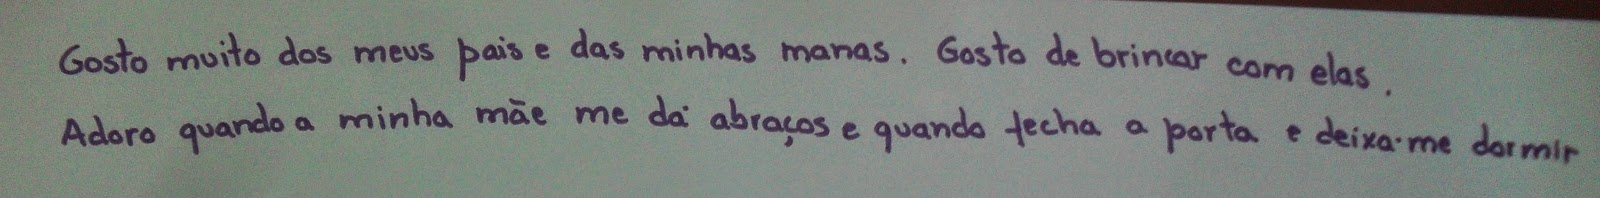 Gosto muito dos meus pais e das minhas manas. Gosto de brincar com elas.
Adoro quando a minha mãe me dá abraços e quando fecha a porta e deixa-me dormir